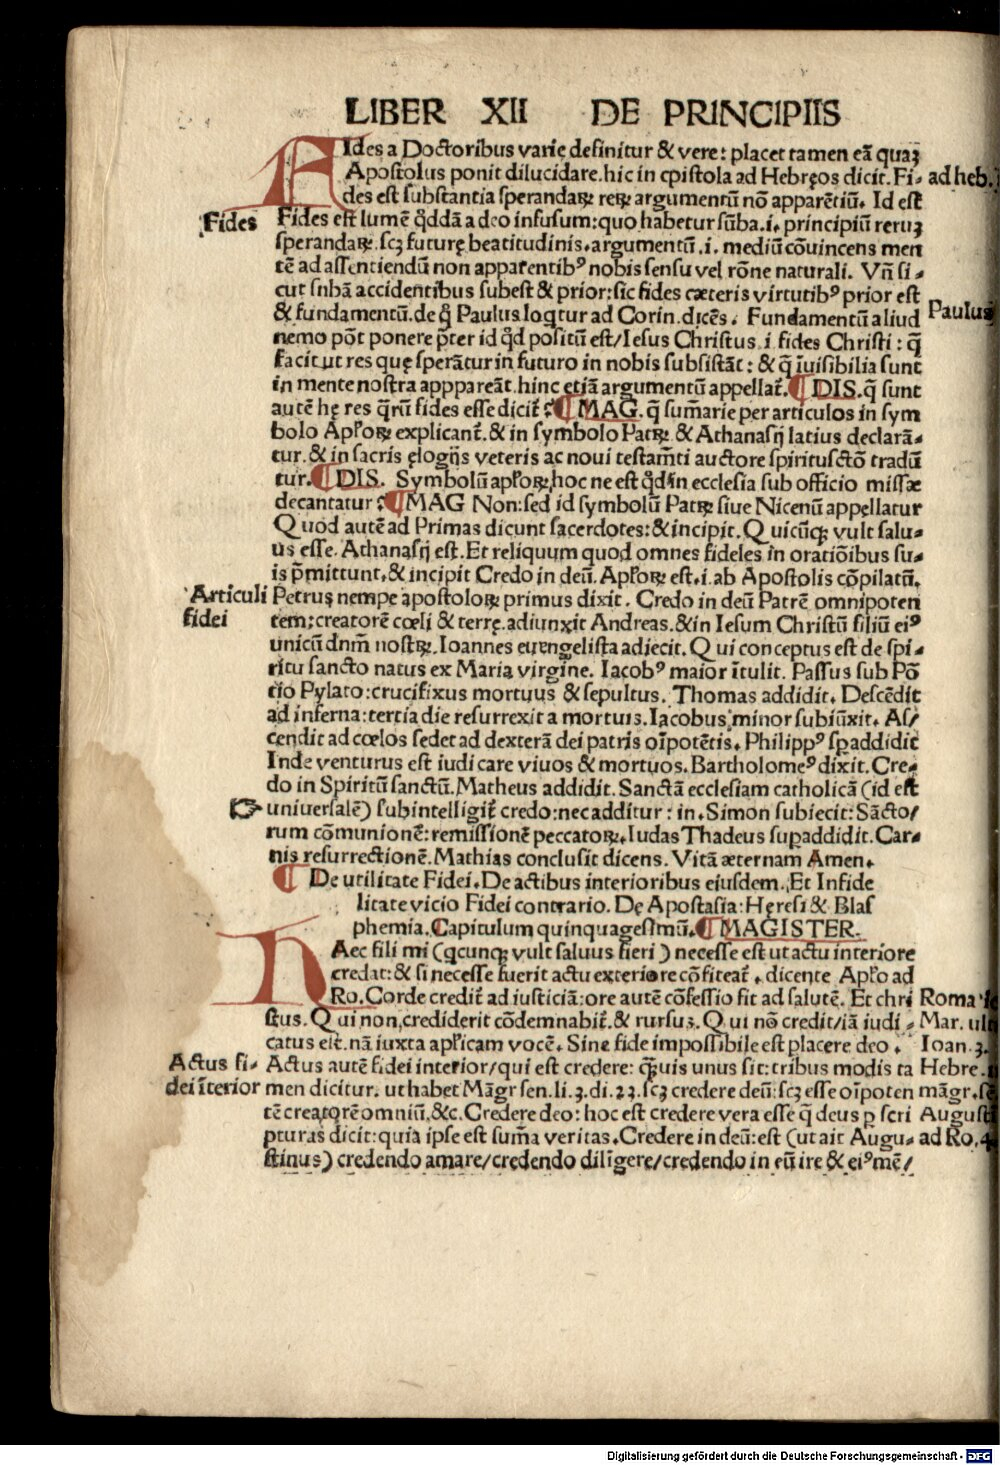 LIBER XII DE PRINCIPIIS
FIdes a Doctoribus varie definitur & vere: placet tamen eā quaꝫ
Apostolus ponit dilucidare. hic in epistola ad Hebręos dicit. Fi-
ad heb.
des est substantia sperandaꝝ reꝝ argumentū nō apparētiū. Id est
Fides
Fides est lumē q̄ddā a deo infusum: quo habetur sūba .i. principiū reruꝫ
sperandaꝝ. scꝫ futurę beatitudinis. argumentū .i. mediū cōuincens men
tē ad assentiendū non apparentibꝰ nobis sensu vel rōne naturali. Vn̄ si-
cut subā accidentibus subest & prior: sic fides cæteris virtutibꝰ prior est
& fundamentū. de q̄ Paulus loqtur ad Corin. dicēs. Fundamentū aliud
Paulus
nemo pōt ponere p̄ter id q̄d positū est/Iesus Christus .i fides Christi: q̄
facit ut res quę sperātur in futuro in nobis subsistāt: & q̄ īuisibilia sunt
in mente nostra apppareāt. hinc etiā argumentū appellat̄. ¶ DIS. q̄ sunt
autē hę res q̄rū fides esse dicit̄? ¶ MAG. q̄ sum̄arie per articulos in sym
bolo Apl'oꝝ explicant̄. & in symbolo Patꝝ & Athanasij latius declarā-
tur. & in sacris elogijs veteris ac noui testam̄ti auctore spirituscto traducū
tur. ¶ DIS. Symbolū apl'oꝝ, hoc ne est q̄d in ecclesia sub officio missæ
decantatur? ¶ MAG Non: sed id symbolū Patꝝ siue Nicenū appellatur
Quod autē ad Primas dicunt sacerdotes: & incipit. Quicūqꝫ vult salu-
us esse. Athanasij est. Et reliquum quod omnes fideles in oratiōibus su-
is p̄mittunt, & incipit Credo in deū. Apl'oꝝ est .i. ab Apostolis cōpilatū.
Articuli
fidei
Petrus nempe apostoloꝝ primus dixit. Credo in deū Patrē omnipoten
tem: creatorē cœli & terrę. adiunxit Andreas. & in Iesum Christū filiū eiꝰ
unicū dnm̄ nostꝝ. Ioannes euangelista adiecit. Qui conceptus est de spi-
ritu sancto natus ex Maria virgine. Iacobꝰ maior ītulit. Passus sub Pō
tio Pylato: crucifixus mortuus & sepultus. Thomas addidit. Descēdit
ad inferna: tertia die resurrexit a mortuis. Iacobus minor subiūxit. As/
cendit ad cœlos sedet ad dexterā dei patris oīpotētis. Philippꝰ sꝑaddidit
Inde venturus est iudicare viuos & mortuos. Bartholomeꝰ dixit. Cre-
do in Spiritū sanctū. Matheus addidit. Sanctā ecclesiam catholicā (id est
☞ uniuersalē) subintelligit̄ credo: nec additur: in. Simon subiecit: Sācto/
rum cōmunionē: remissionē peccatoꝝ. Iudas Thadeus suꝑaddidit. Car-
nis resurrectionē. Mathias conclusit dicens. Vitā æternam Amen.
¶ De utilitate Fidei. De actibus interioribus eiusdem. Et Infide
litate vicio Fidei contrario. De Apostasia: Hęresi & Blas
phemia. Capitulum quinquagesimū. ¶ MAGISTER.
HAec fili mi (qcunqꝫ vult saluus fieri) necesse est ut actu interiore
credat: & si necesse fuerit actu exteriore cōfiteat̄. dicente Apl'o ad
RO. Corde credit̄ ad iusticiā: ore autē cōfessio fit ad salutē. Et chri
Roma
stus. Qui non crediderit cōdemnabit̄. & rursus. Qui nō credit/iā iudi-
Mar. ult
catus est. nā iuxta apl'icam vocē. Sine fide impossibile est placere deo.
Ioan. 3.
Actus fi-
dei īterior
Actus autē fidei interior/qui est credere: q̄uis unus sit: tribus modis ta
Hebre.
men dicitur. ut habet Māgr sen. li. 3. di. 23. scꝫ credere deū: scꝫ esse oīpoten
māgr.
tē creatorē omniū. &c. Credere deo: hoc est credere vera esse q̄ deus ꝑ scri
August
pturas dicit: quia ipse est sum̄a veritas. Credere in deū: est (ut ait Augu-
ad Ro. 4
stinus) credendo amare/credendo diligere/credendo in eū ire & eiꝰ mē/
Digitalisierung gefördert durch die Deutsche Forschungsgemeinschaft - DFG